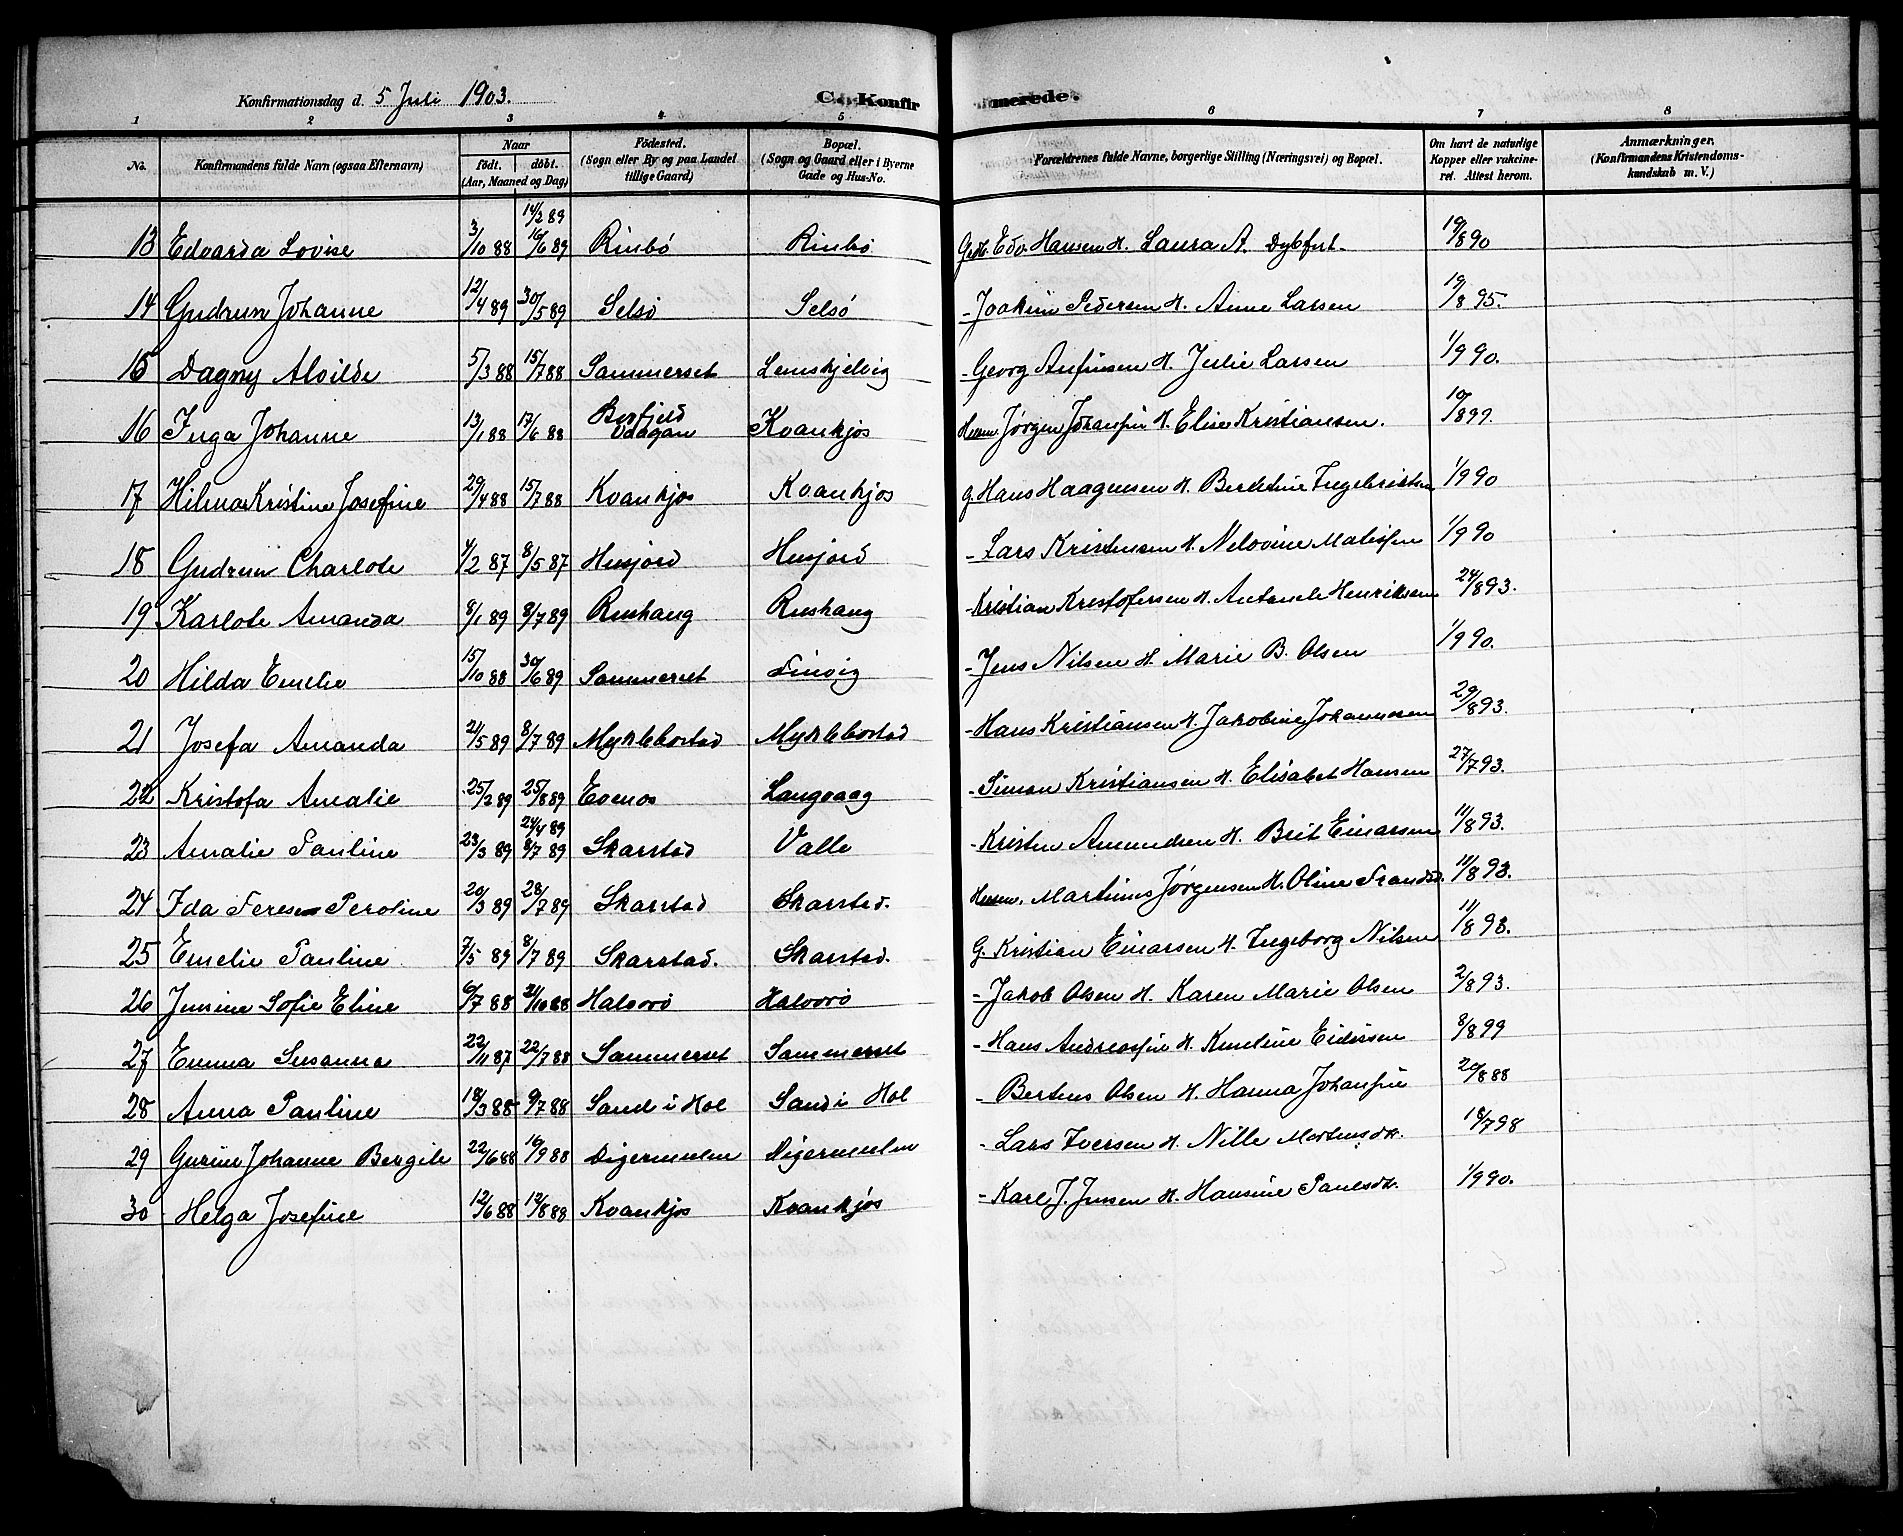 Konfirmationsdag d. 5 Juli 1903. C. Konfirmerede.
1 2 3 4 5 6 7 8
No. Konfirmandens fulde Navn (ogsaa Efternavn) Naar födt. döbt. (Aar, Maaned og Dag) Födested. (Sogn eller By og paa Landet tillige Gaard) Bopæl. (Sogn og Gaard eller i Byerne Gade og Hus-No. Forældrenes fulde Navne, borgerlige Stilling (Næringsvei) og Bopæl. Om havt de naturlige Kopper eller vakcineret. Attest herom. Anmærkninger. (Konfirmandens Kristendomskundskab m. V.)
14/2 89
13 Edvarda Lovise 3/10 88 16/6 89 Rinbö Rinbö Edv. Hansen H. Laura A. Dybfest 19/8 90
14 Gudrun Johanne 12/4 89 30/5 89 Selsö Selsö - Joakim Pedersen H. Anne Larsen 19/8 95.
15 Dagny Alvilde 5/3 88 15/7 88 Sammerset - Georg Anfinsen H. Julie Larsen 1/9 90.
16 Inga Johanne 13/1 88 17/6 88 Kvankjos Jörgen Johansen H. Elise Kristiansen. 19/8 99.
17 Hilma Kristine Josefine 29/4 88 15/7 88 Kvankjos Kvankjos g. Hans Haagensen H. Berntine Ingebrigtsen 1/9 90
18 Gudrun Charlote 4/2 87 8/5 87 Husjord Husjord - Lars Kristensen H. 1/9 90
19 Karlote Amanda 8/1 89 8/7 89 - Kristian Kristofersen H. Henriksen 24/8 93.
20 Hilda Emelie 15/10 88 30/6 89 Sammerset Finvig - Jens Nilsen H. Marie B. Olsen 1/9 90.
21 Josefa Amanda 21/5 89 8/7 89 Myklebostad Myklebostad - Hans Kristiansen H. Jakobine Johannesen 29/8 93.
22 Kristofa Amalie 25/2 89 25/8 89 Evenes Langvaag - Simon Kristiansen H. Elisabet Hansen 27/7 93.
24/4 89
23 Amalie Pauline 23/3 89 8/7 89 Skarstad Valle - Kristen Amundsen H. Brit Einarsen 11/8 93.
24 Ida Terese Peroline 20/3 89 28/7 89 Skarstad Skarstad. Martinus Jörgensen H. Oline Frandsd. 11/8 93.
25 Emelie Pauline 7/5 89 8/7 89 Skarstad. Skarstad. G. Kristian Einarsen H. Ingeborg Nilsen 11/8 93.
26 Jensine Sofie Eline 6/7 88 21/10 88 Halvorö Halvorö - Jakob Olsen H. Karen Marie Olsen 2/8 93.
27 Emma Susanna 22/11 87 22/7 88 Sammerset Sammerset - Hans Andreassen H. 8/8 99
28 Anna Pauline 18/3 88 9/7 88 Sand i Hol Sand i Hol - Olsen H. Hanna Johansen 20/8 88
29 Gurine Johanne Bergite 22/6 88 16/9 88 Digermulen Digermulen - Lars Iversen H. Nille Mortensdtr. 18/7 98
30 Helga Josefine 12/6 88 12/8 88 Kvankjos Kvankjos - Karl J. Jensen H. Hansine Paulsdtr. 1/9 90.